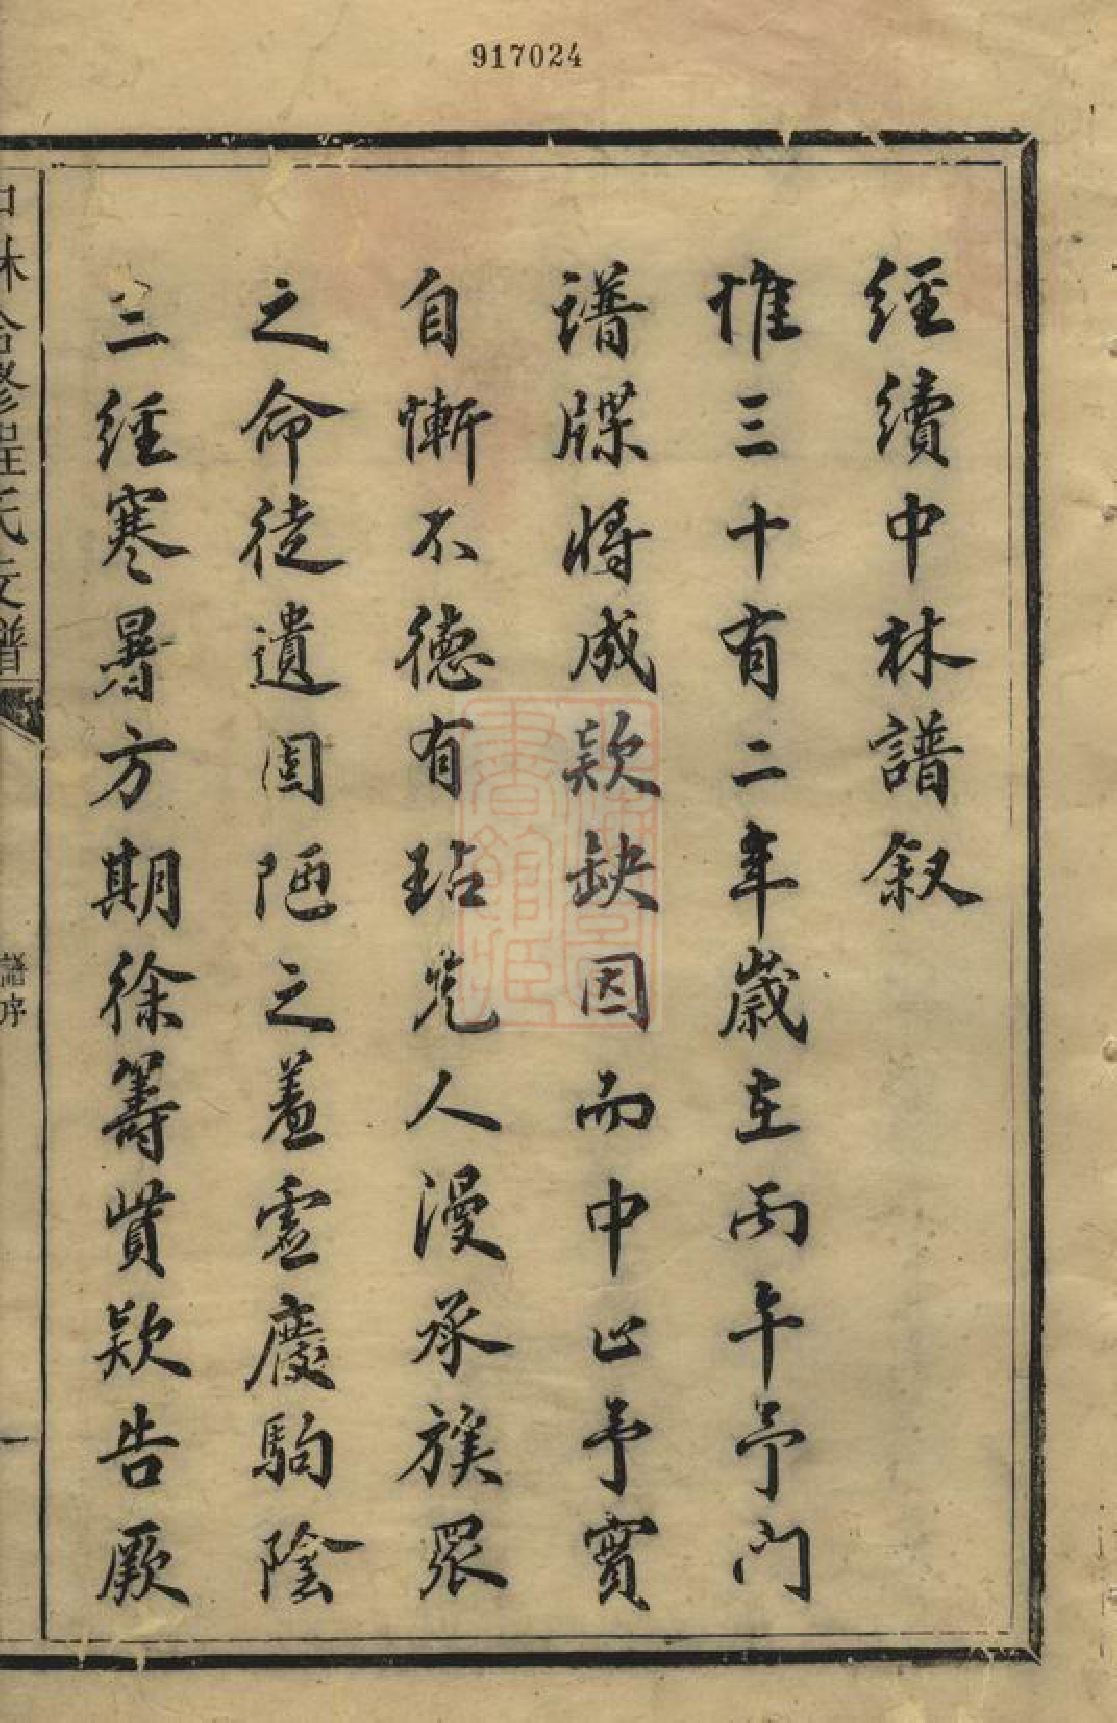 917024
經續中林譜叙
惟三十有二年歲在丙午予門
譜牒將成欵缺因而中止予實
自慚不德有玷先人漫承族眾
之命徒遺固陋之羞虛度駒陰
三經寒暑方期徐籌貲欵告厥
中林合修汪氏支譜
譜序
一